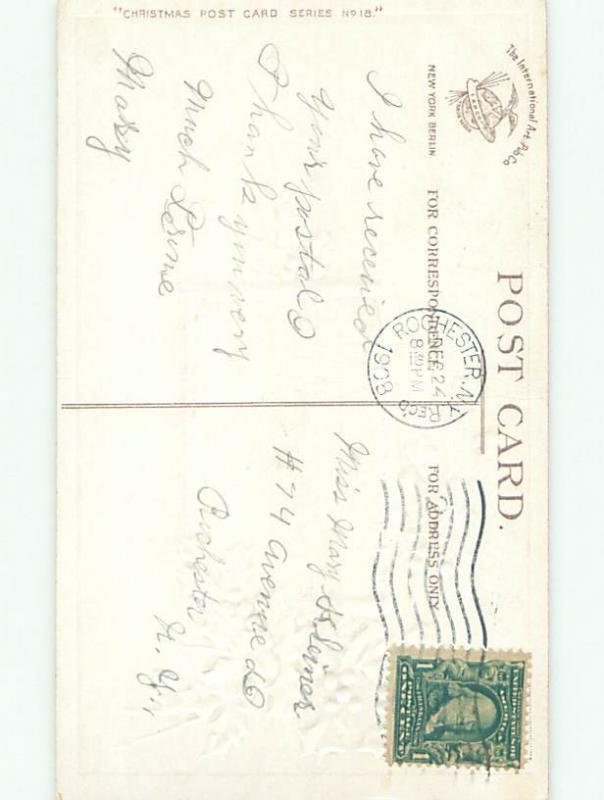 "CHRISTMAS POST CARD SERIES No 18."
The International Art Pub. Co.
NEW YORK BERLIN
POST CARD.
FOR CORRESPONDENCE
FOR ADDRESS ONLY
ROCHESTER, N.Y.
DEC 24
8 30 PM
1908
REC'D
I have received
your postal
Thank you very
Much
Mary
Miss Mary Kleiner
#74 Avenue D
Rochester
N. Y.
1 1